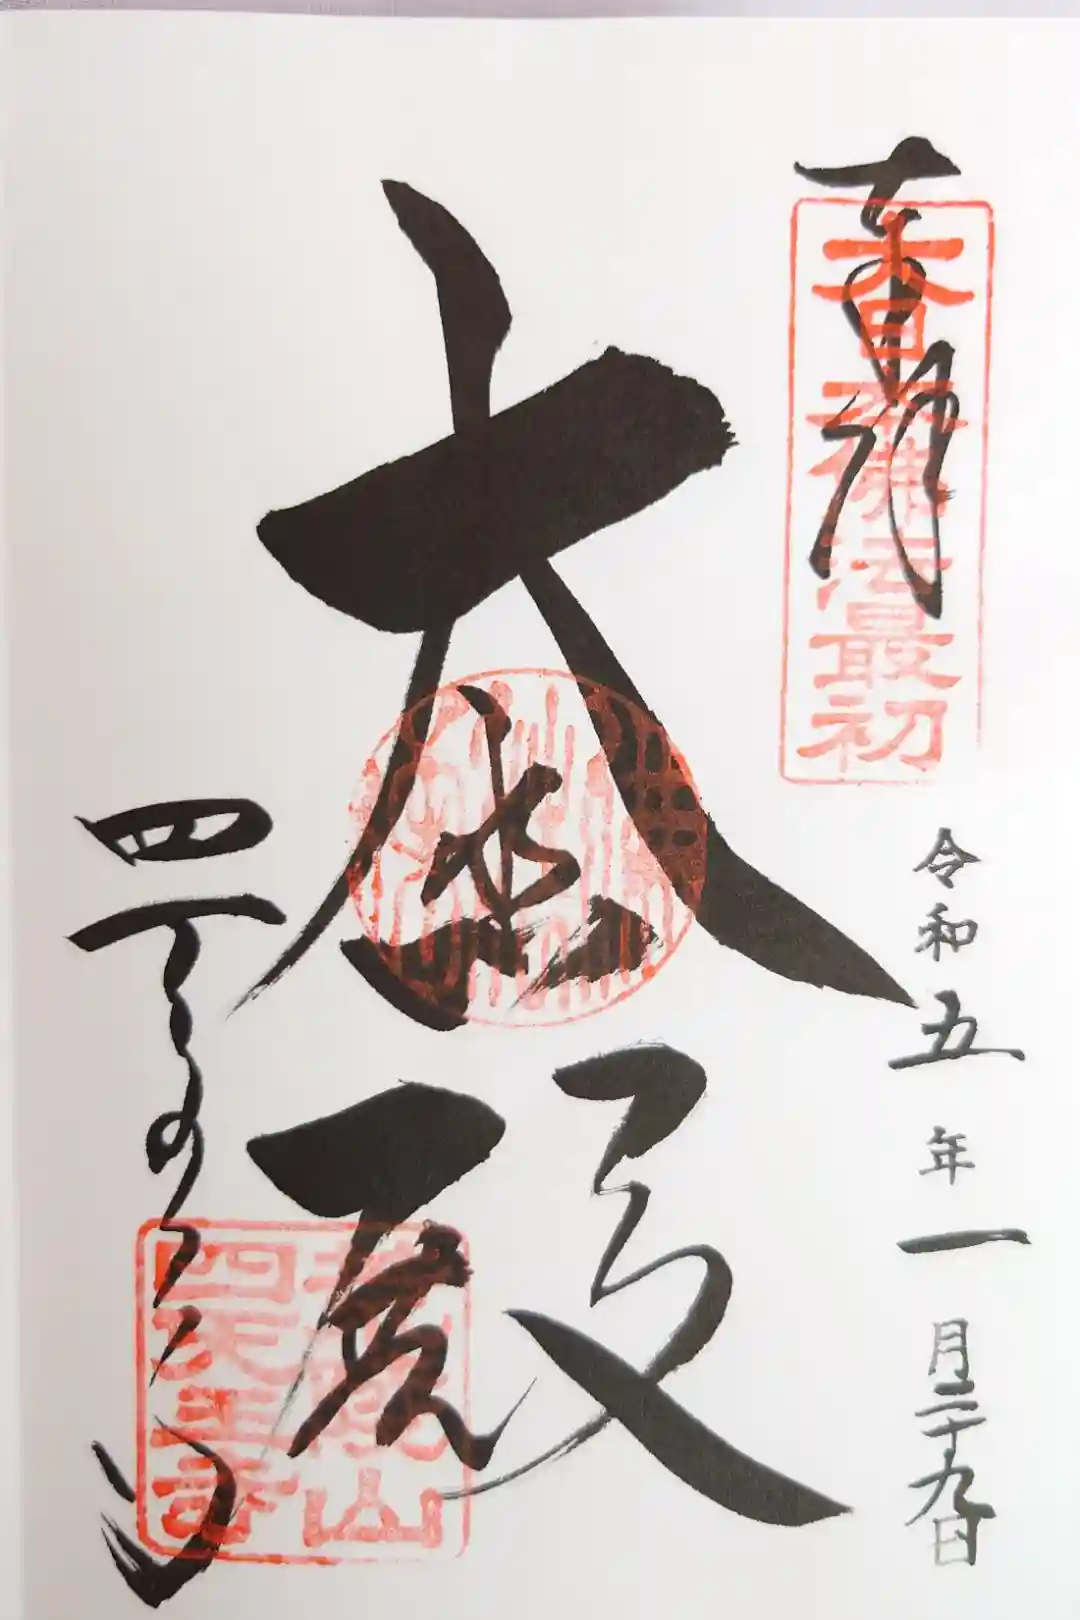 奉拝
大日本佛法最初
令和五年一月二十九日
大悲殿
四天王寺
荒陵山
四天王寺